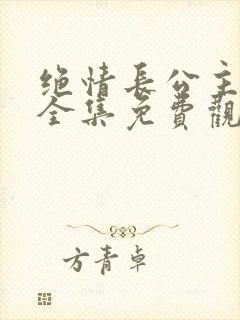 绝情长公主
全集免费觀
方青卓